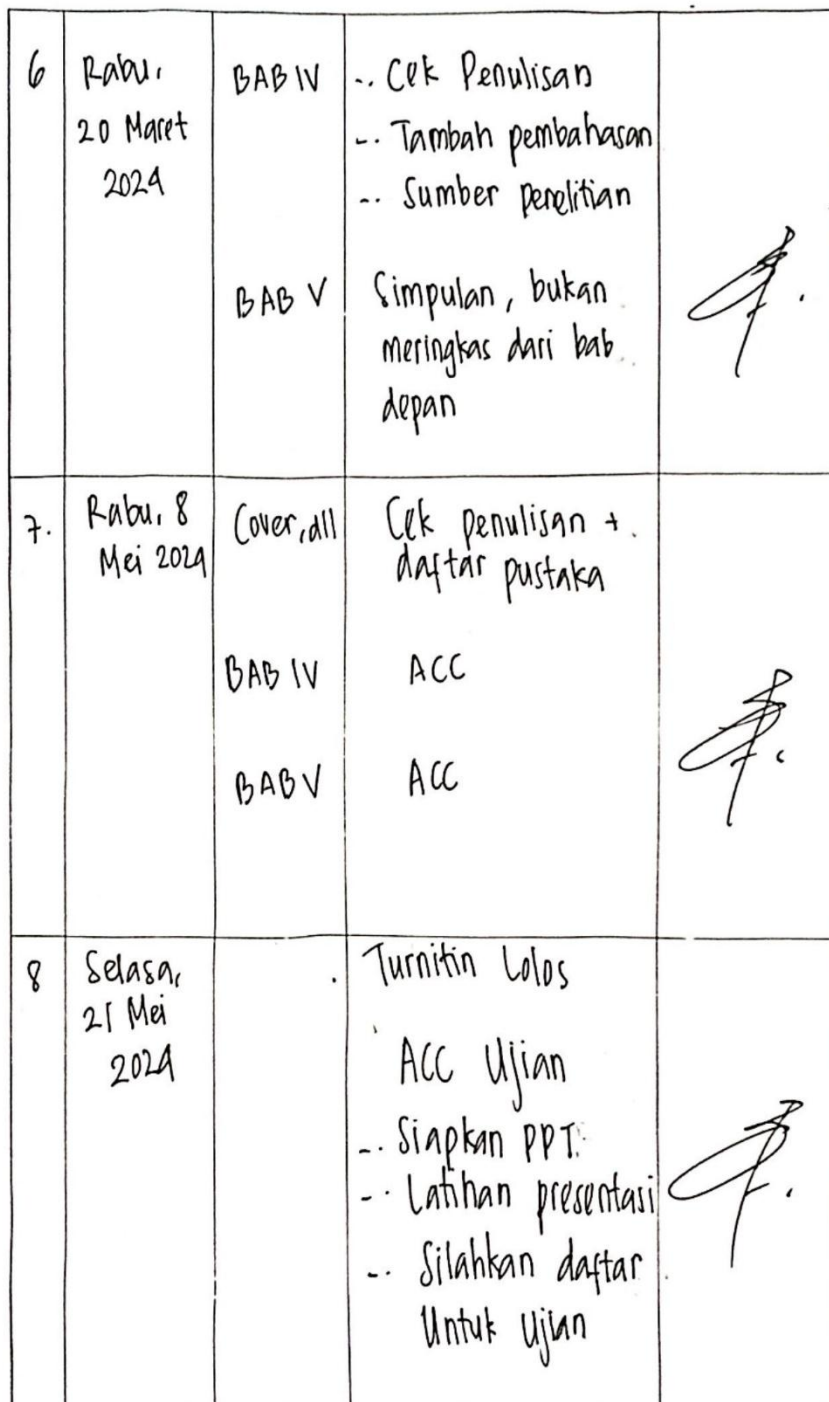 6
Rabu,
20 Maret
2024
BAB IV
-. Cek Penulisan
-. Tambah pembahasan
-. Sumber penelitian
BAB V
Simpulan, bukan
meringkas dari bab
depan
7.
Rabu, 8
Mei 2024
Cover, dll
Cek penulisan +
daftar pustaka
BAB IV
ACC
BAB V
ACC
8
Selasa,
21 Mei
2024
Turnitin Lolos
ACC Ujian
-. Siapkan PPT.
-. Latihan presentasi
-. Silahkan daftar
Untuk Ujian